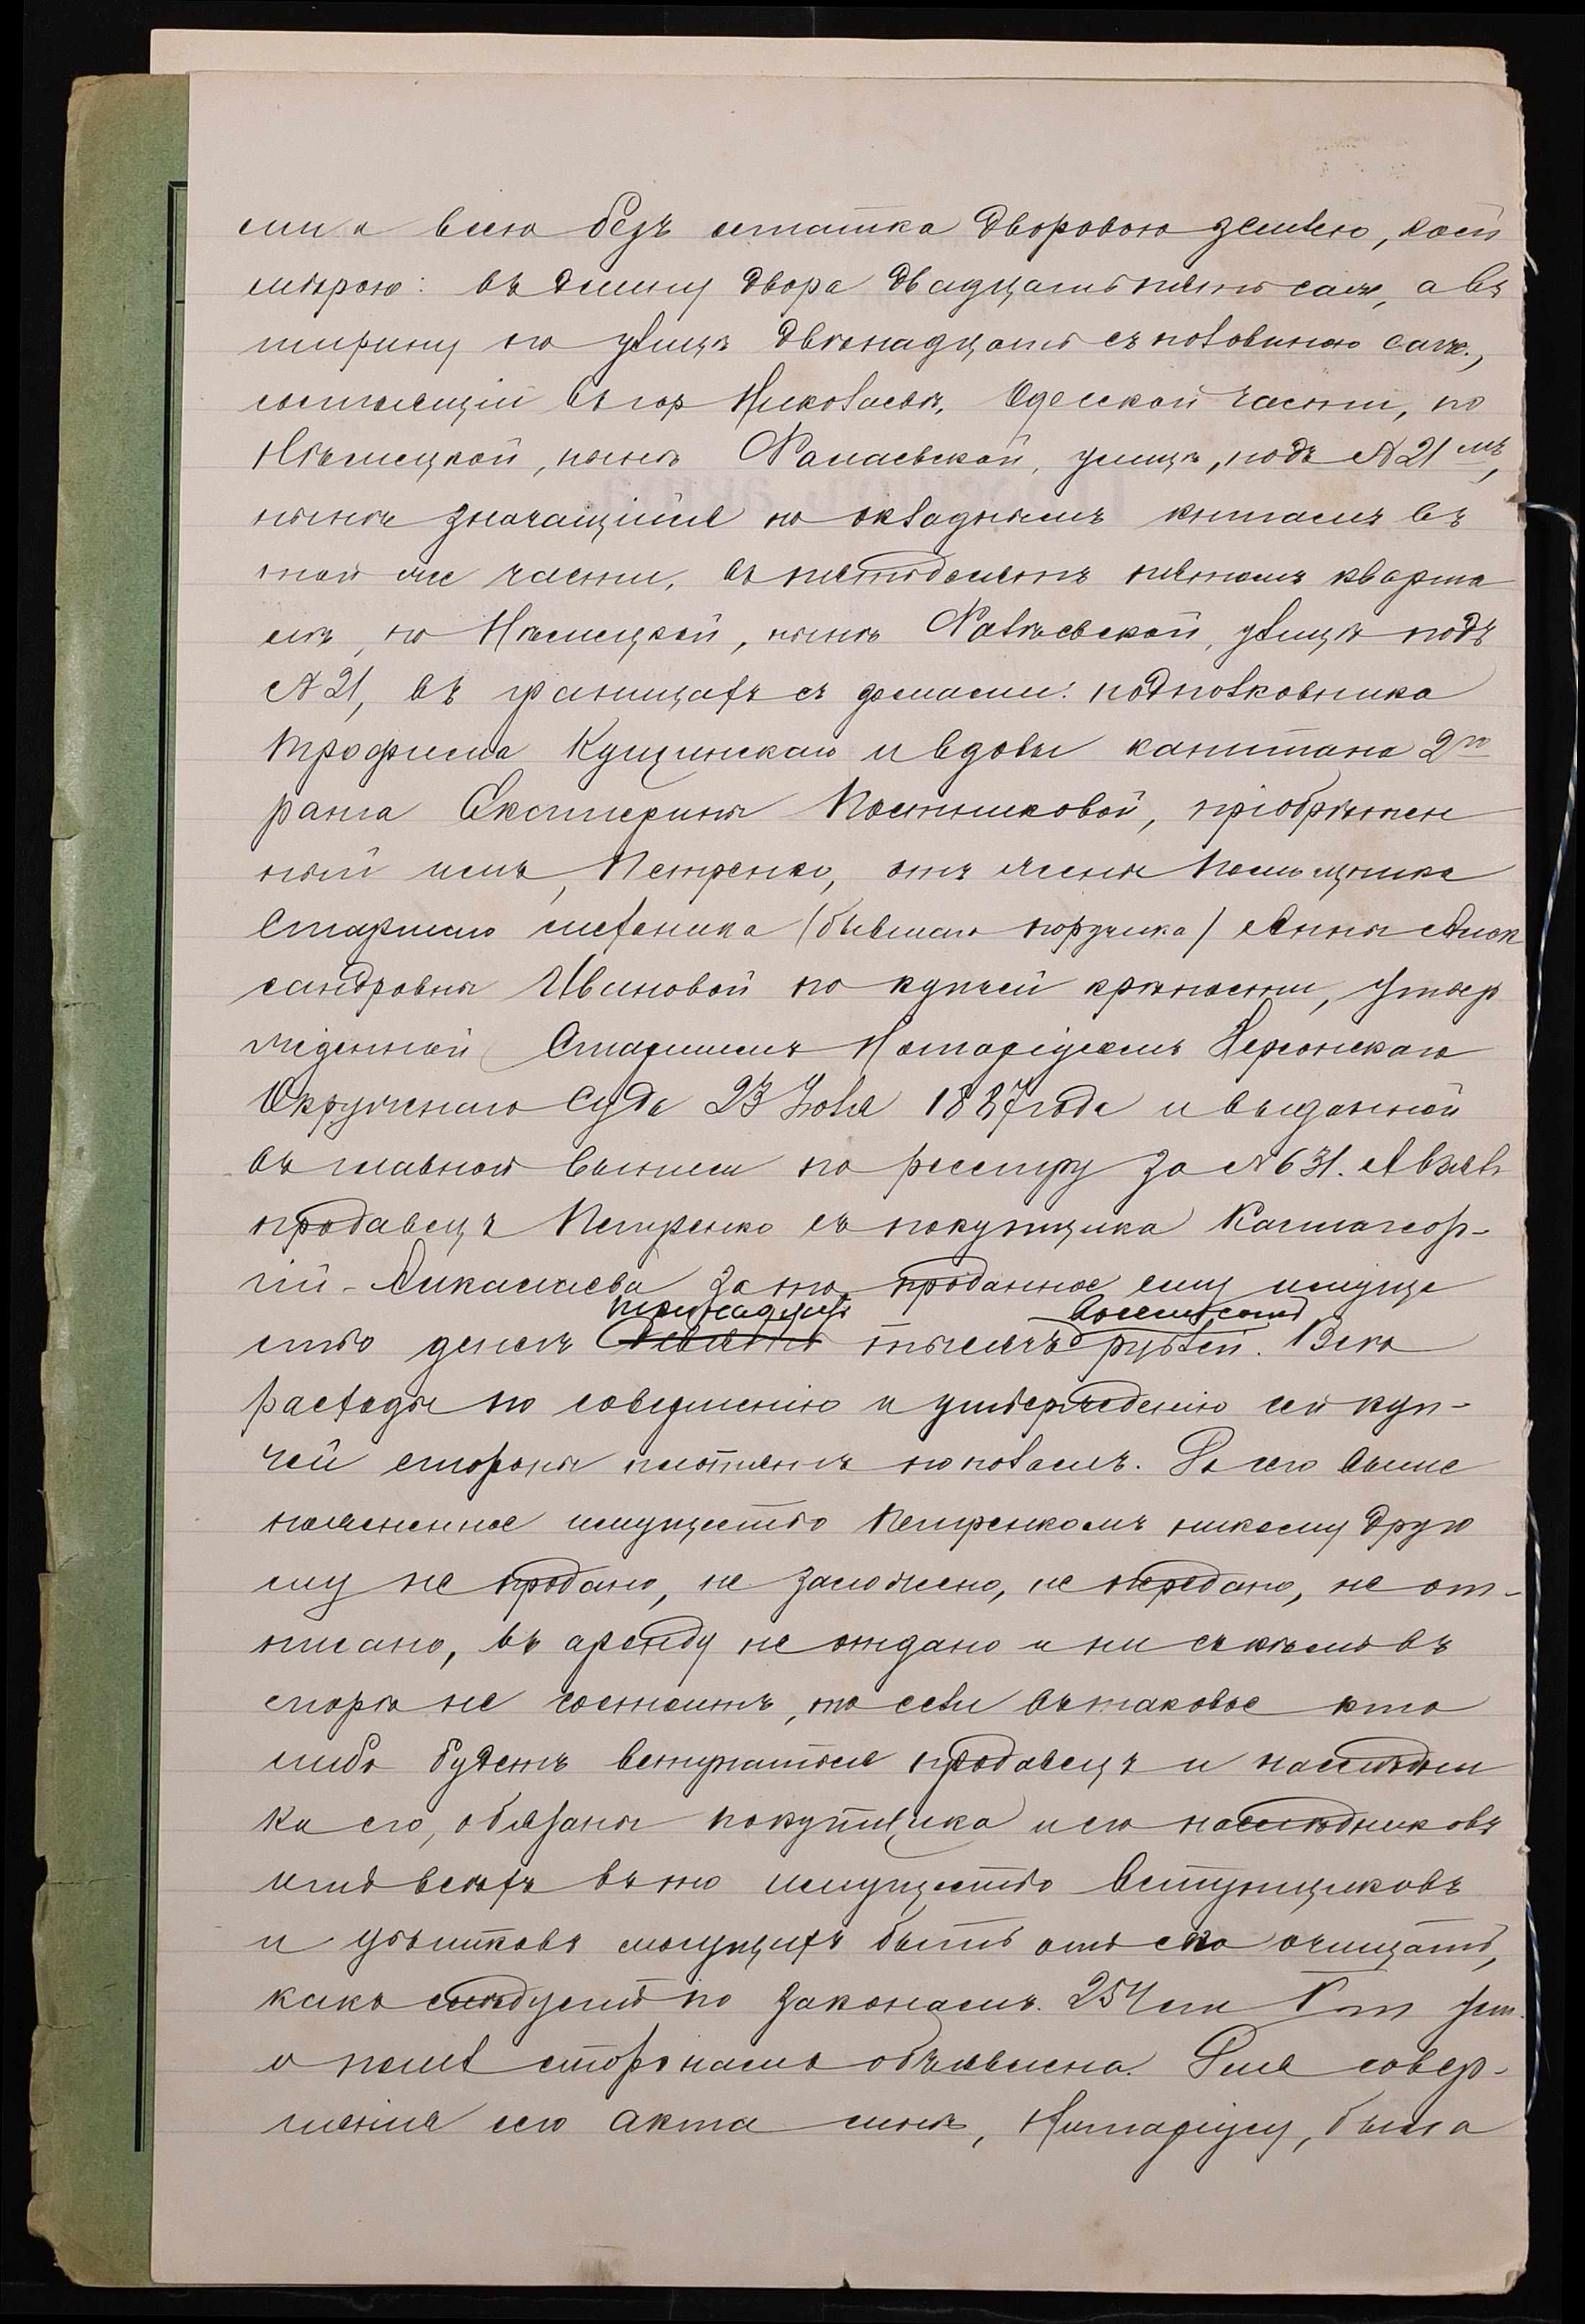 ми и всею безъ остатка дворовою землею, коей
мѣрою: въ длину двора двадцать пять саж, а въ
ширину по улицѣ двѣнадцать съ половиною саж.,
состоящій въ гор Николаевѣ, Одесской части, по
Нѣмецкой, нынѣ улицѣ, подъ № 21 мъ,
нынѣ значащійся по окладнымъ книгамъ въ
той же части, въ пятьдесятъ пятомъ кварта
лѣ, по Нѣмецкой, нынѣ улицѣ подъ
№ 21, въ границахъ съ домами: подполковника
Трофима Кущинскаго и вдовы капитана 2го
ранга Екатерины Постниковой, пріобрѣтен
ный имъ, Петренко, отъ жены Помѣщика
Старшаго механика (бывшаго поручика) Анны Алек
сандровны Ивановой по купчей крѣпости, утвер
жденной Старшимъ Нотаріусомъ Херсонскаго
Окружнаго Суда 23 Іюля 1887 года и выданной
въ главной выписи по реестру за № 631. А взялъ
продавецъ Петренко съ покупщика
за то проданное ему имуще
тринадцать восемьсотъ
ство денегъ девять тысячъ рублей. Всѣ
расходы по совершенію и утвержденію сей куп-
чей стороны платятъ пополамъ. До сего выше
поясненное имущество Петренкомъ никому друго
му не продано, не заложено, не передано, не от-
писано, въ аренду не отдано и ни съ кѣмъ въ
спорѣ не состоитъ, то если въ таковое кто
либо будетъ вступаться продавецъ и наслѣдни
ки его, обязаны покупщика и его наслѣдниковъ
отъ всѣхъ въ то имущество вступщиковъ
и убытковъ могущихъ быть отъ сего очищать,
какъ слѣдуетъ по законамъ. 254 ст V т уст.
о пошл сторонамъ объявлена. Для совер-
шенія сего акта мнѣ, Нотаріусу, была